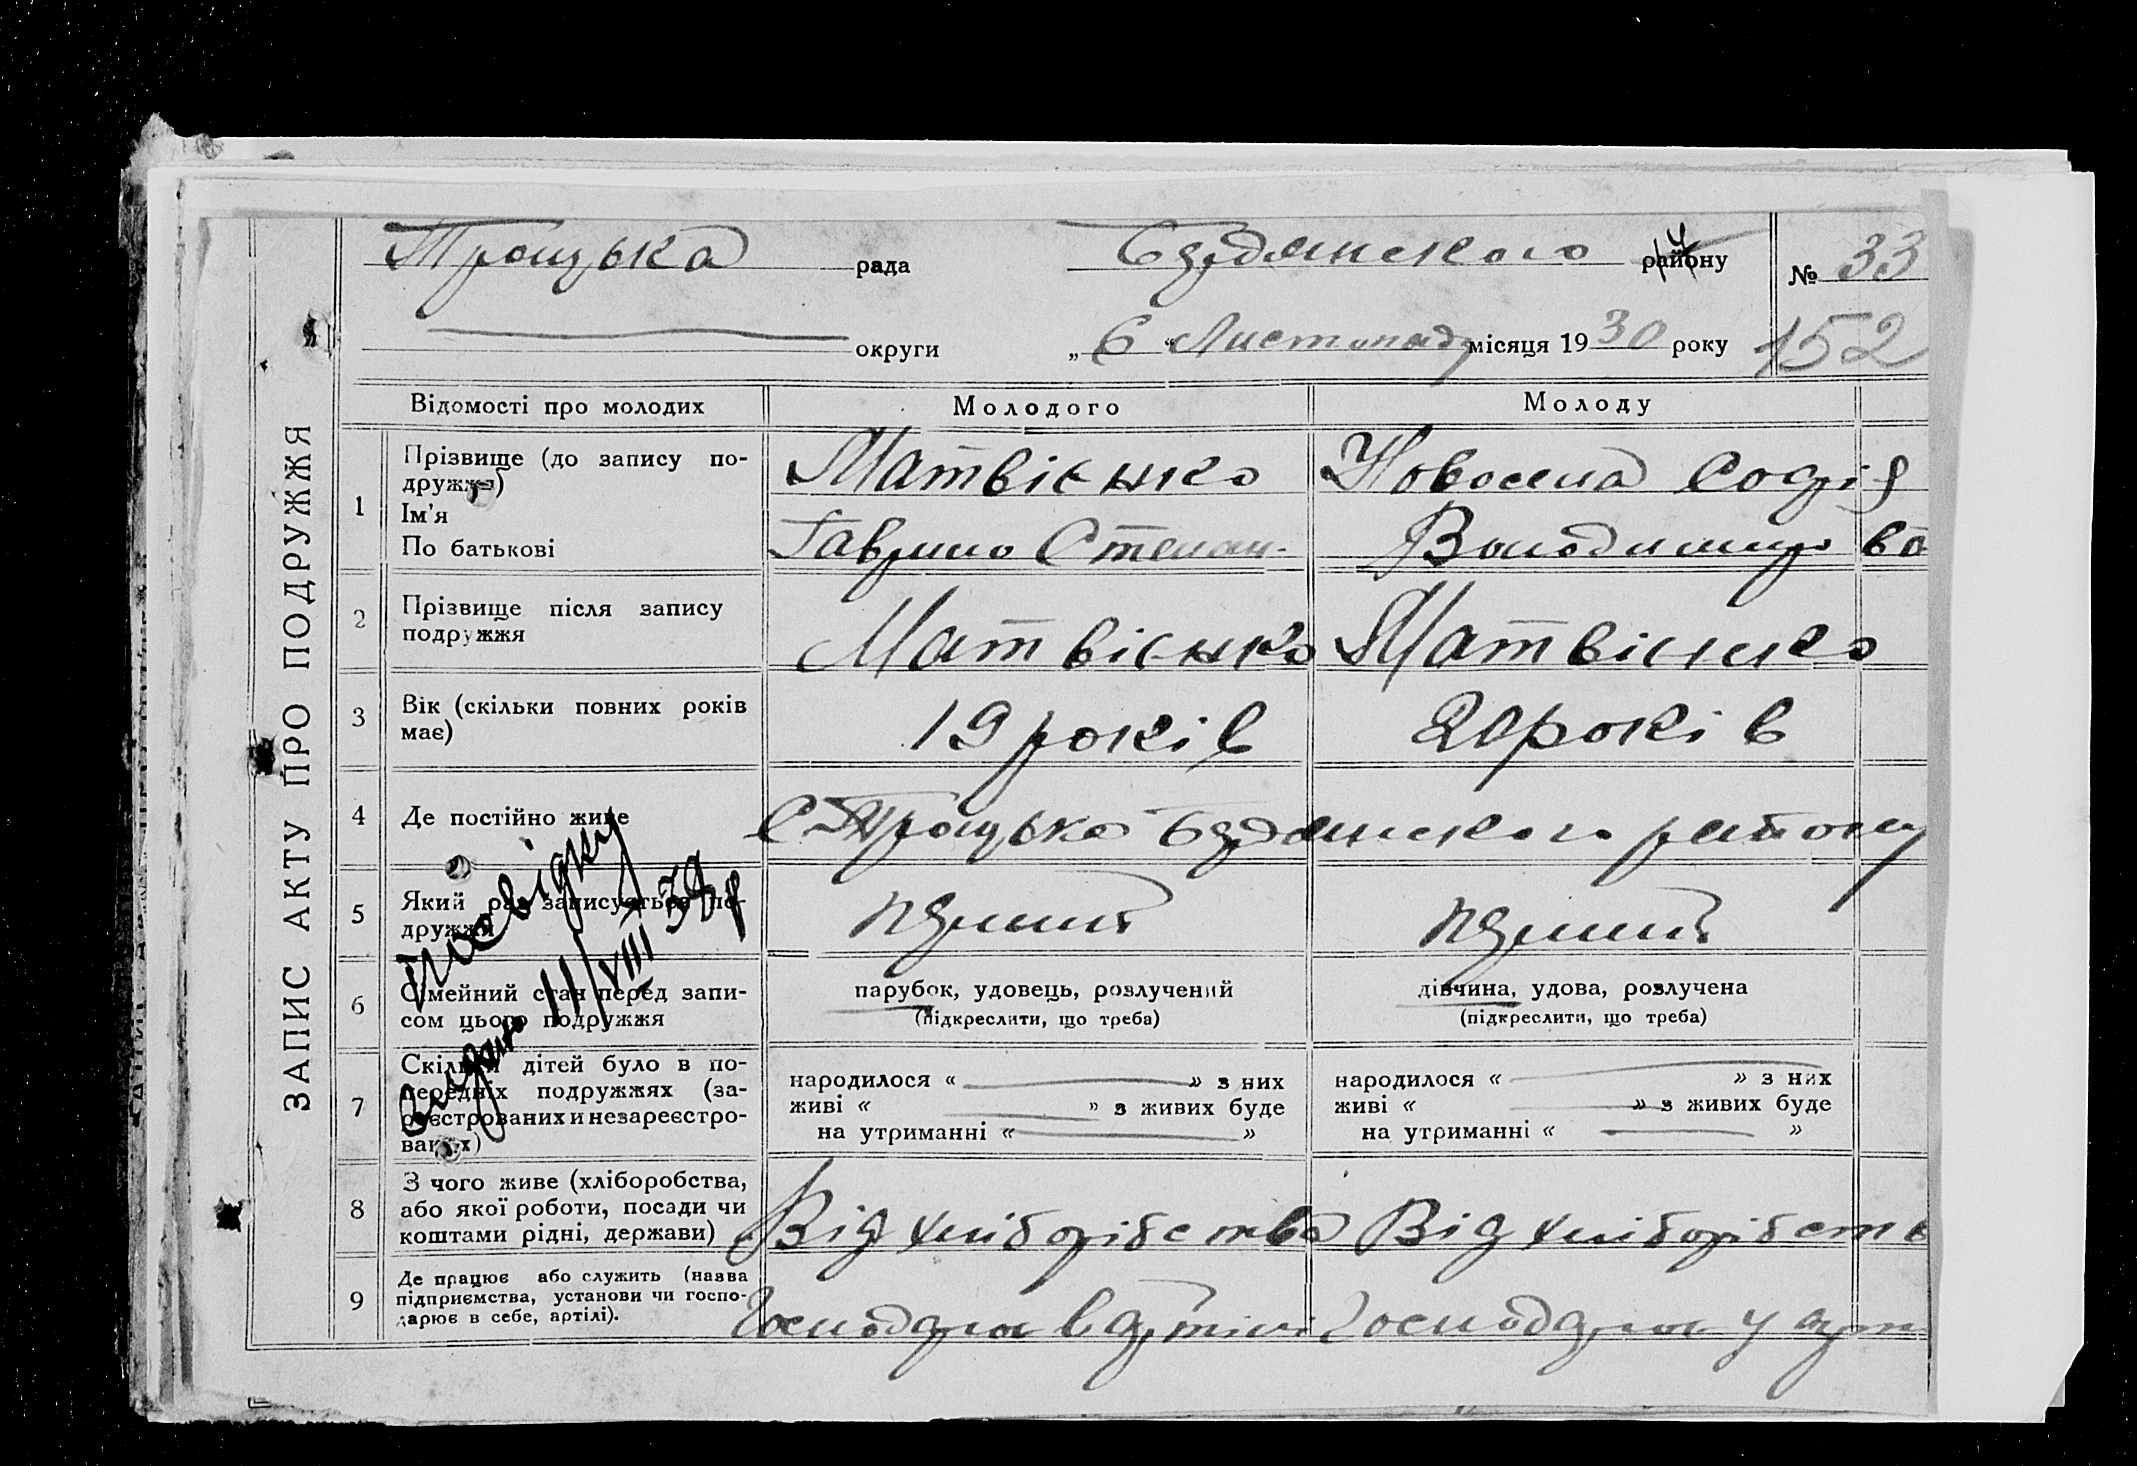 ЗАПИС АКТУ ПРО ПОДРУЖЖЯ
Троцька рада Бердянского району № 33
округи „ 6 “ Листопаду місяця 19 30 року 152
Відомості про молодих Молодого Молоду
1 Прізвище (до запису по-
дружжя)
Ім'я
По батькові
Матвієнко Новосела Софія
Гаврило Степан. Володимиро ва
2 Прізвище після запису
подружжя
Матвієнко Матвієнко
3 Вік (скільки повних років
має)
19 років 20 років
4 Де постійно живе
С Троцька Бердянского району
5 Який раз записується по-
дружжя
перший перший
6 Сімейний стан перед запи-
сом цього подружжя
парубок, удовець, розлучений
(підкреслити, що треба)
дівчина, удова, розлучена
(підкреслити, що треба)
7 Скільки дітей було в по-
передніх подружжях (за-
реєстрованих и незареєстро-
ваних)
народилося « » з них
живі « » з живих буде
на утриманні « »
народилося « » з них
живі « » з живих буде
на утриманні « »
8 З чого живе (хліборобства,
або якої роботи, посади чи
коштами рідні, держави)
Від хліборібства Від хліборібств
9 Де працює або служить (назва
підприємства, установи чи госпо-
дарює в себе, артілі).
Господарює в артілі Господарює у арт
посвідку
видано 11/VIII 39 р